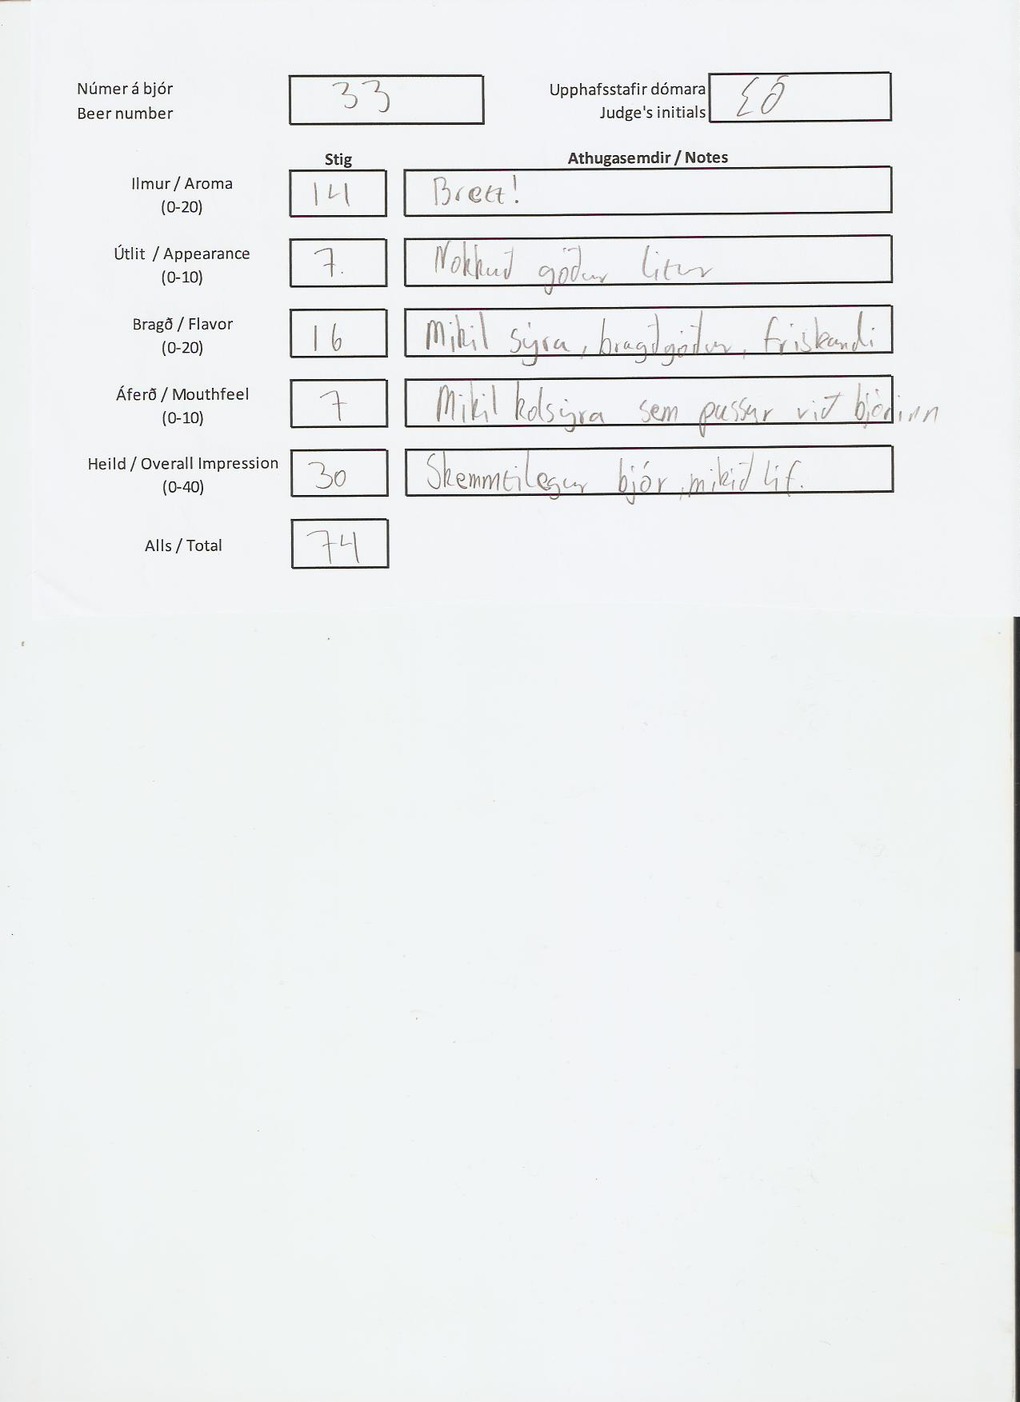 Númer á bjór
Beer number
33
Upphafsstafir dómara
Judge's initials
EÖ
Stig
Athugasemdir / Notes
Ilmur / Aroma
(0-20)
14
Brett!
Útlit / Appearance
(0-10)
7.
Nokkuð góður litur
Bragð / Flavor
(0-20)
16
Mikil sýra, bragðgóður, frískandi
Áferð / Mouthfeel
(0-10)
7
Mikil kolsýra sem passar við bjórinn
Heild / Overall Impression
(0-40)
30
Skemmtilegur bjór, mikið líf.
Alls / Total
74